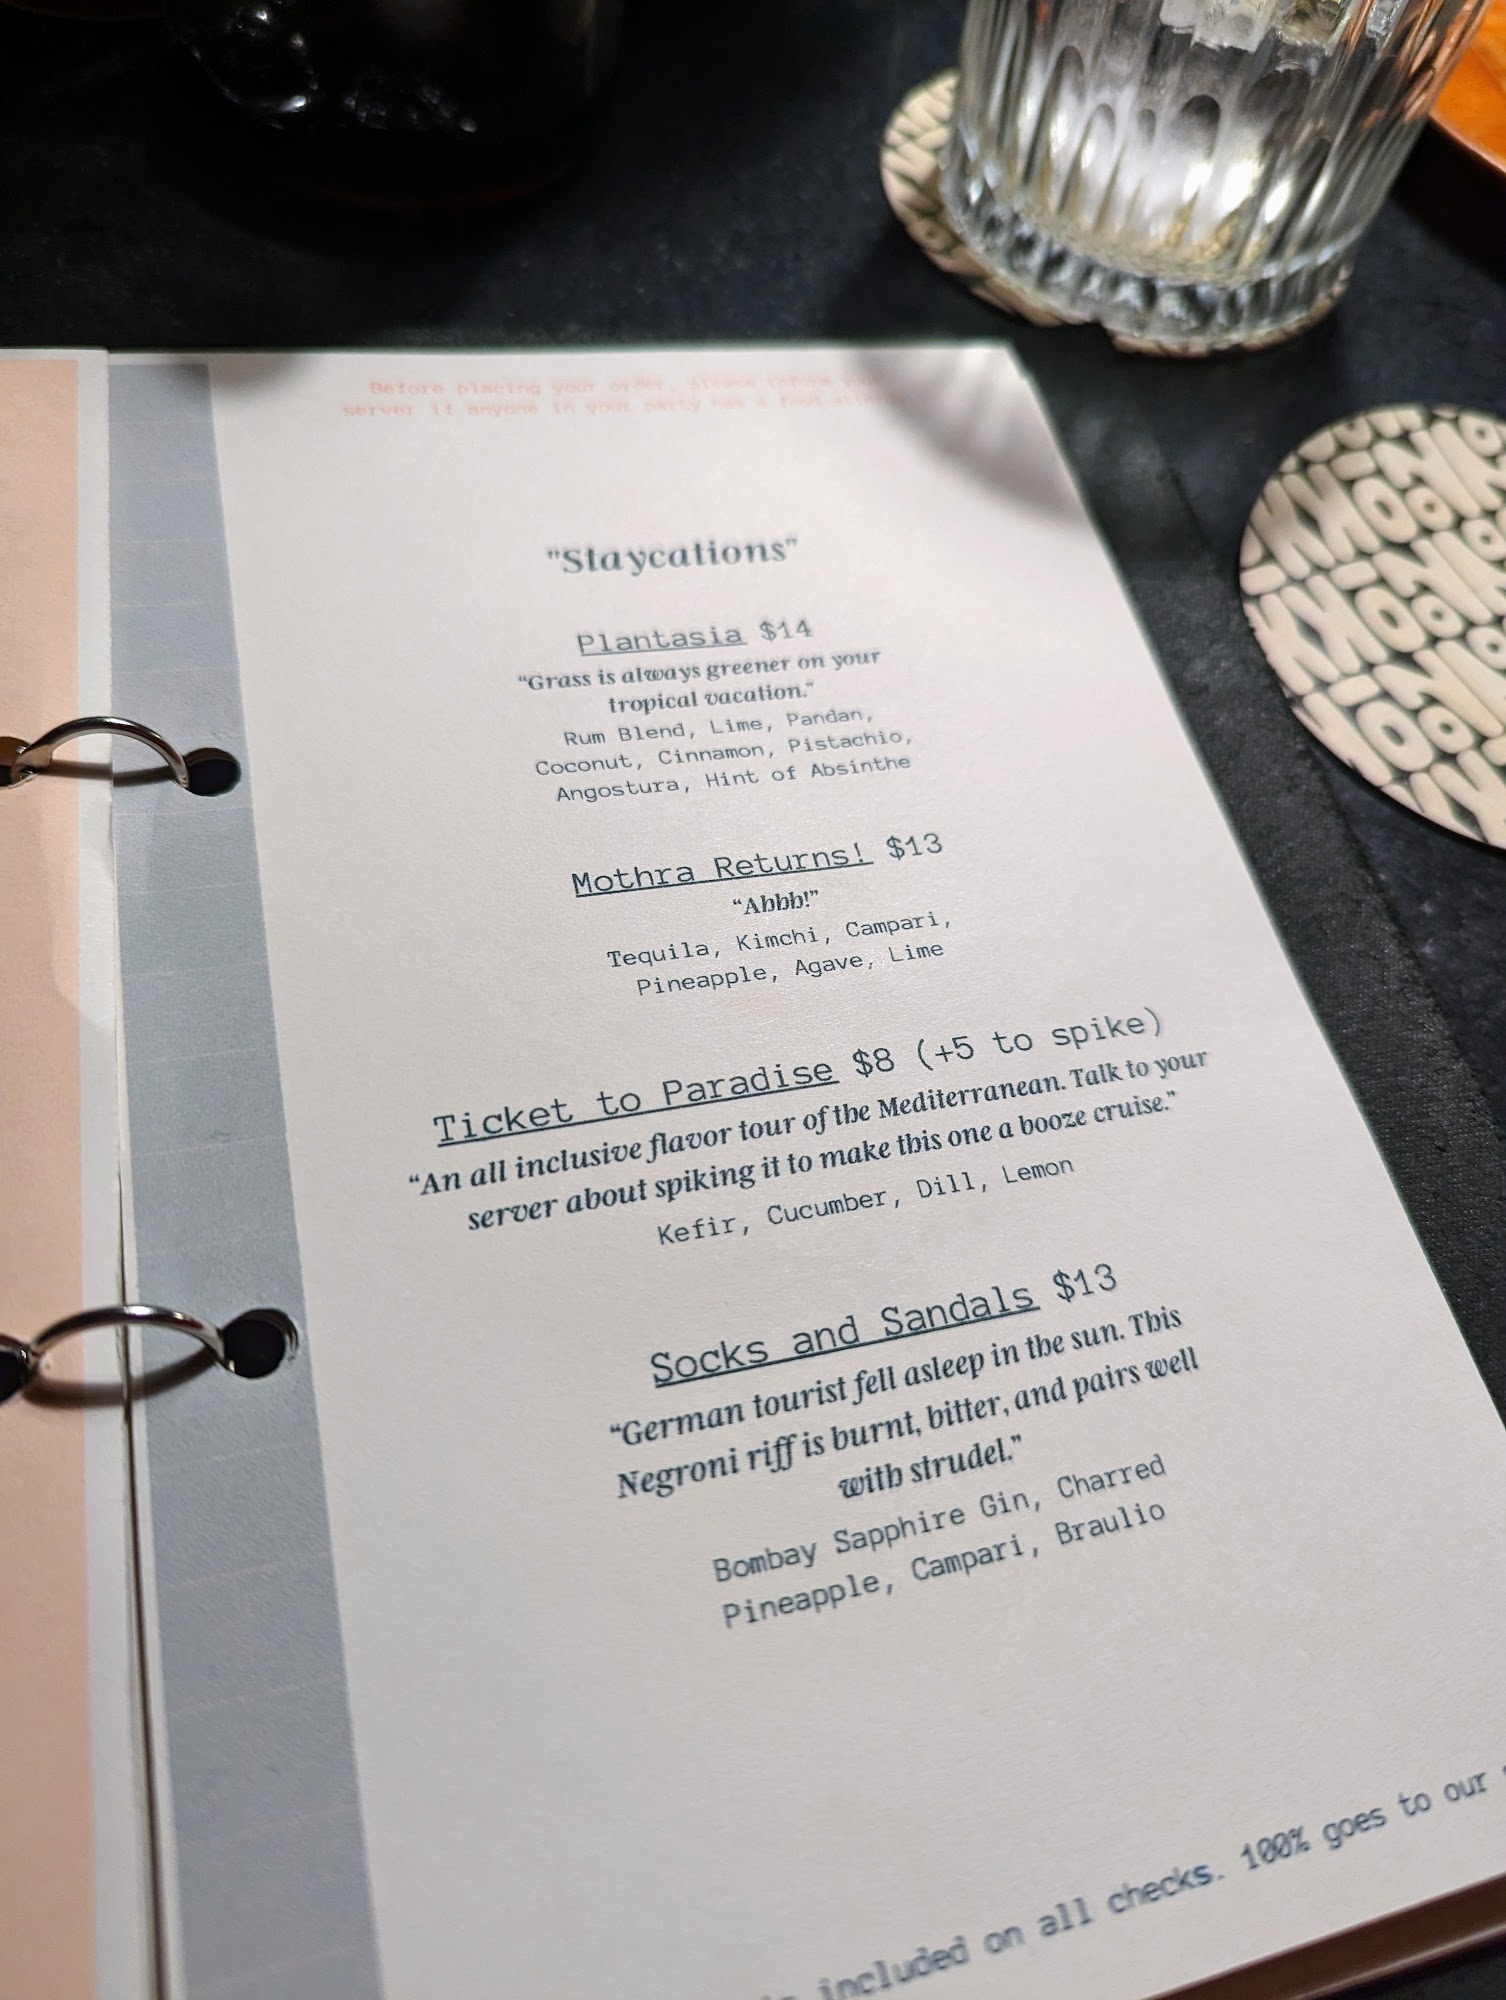 Before placing your order, please inform your
server if anyone in your party has a food allergy.
"Staycations"
Plantasia $14
“Grass is always greener on your
tropical vacation.”
Rum Blend, Lime, Pandan,
Coconut, Cinnamon, Pistachio,
Angostura, Hint of Absinthe
Mothra Returns! $13
“Ahhh!”
Tequila, Kimchi, Campari,
Pineapple, Agave, Lime
Ticket to Paradise $8 (+5 to spike)
“An all inclusive flavor tour of the Mediterranean. Talk to your
server about spiking it to make this one a booze cruise.”
Kefir, Cucumber, Dill, Lemon
Socks and Sandals $13
“German tourist fell asleep in the sun. This
Negroni riff is burnt, bitter, and pairs well
with strudel.”
Bombay Sapphire Gin, Charred
Pineapple, Campari, Braulio
included on all checks. 100% goes to our